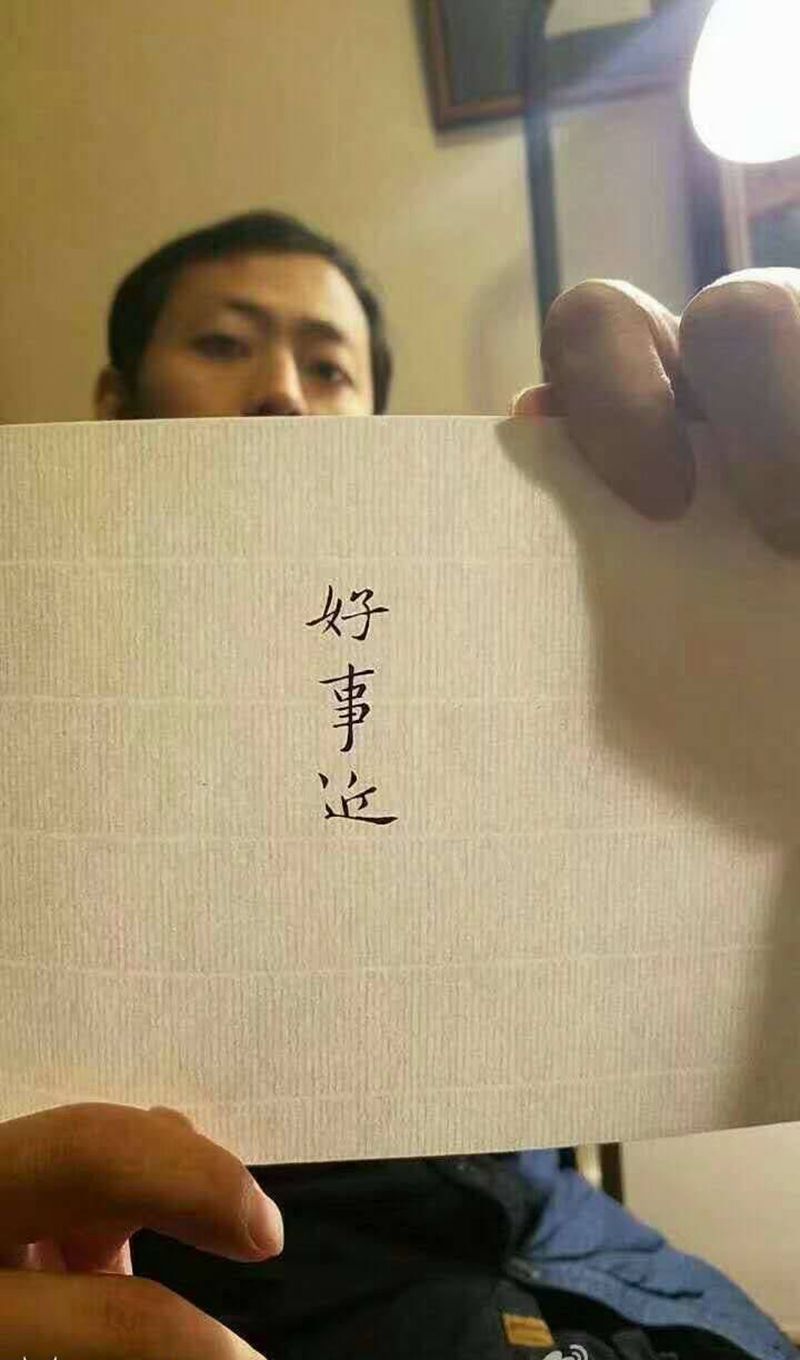 好事近